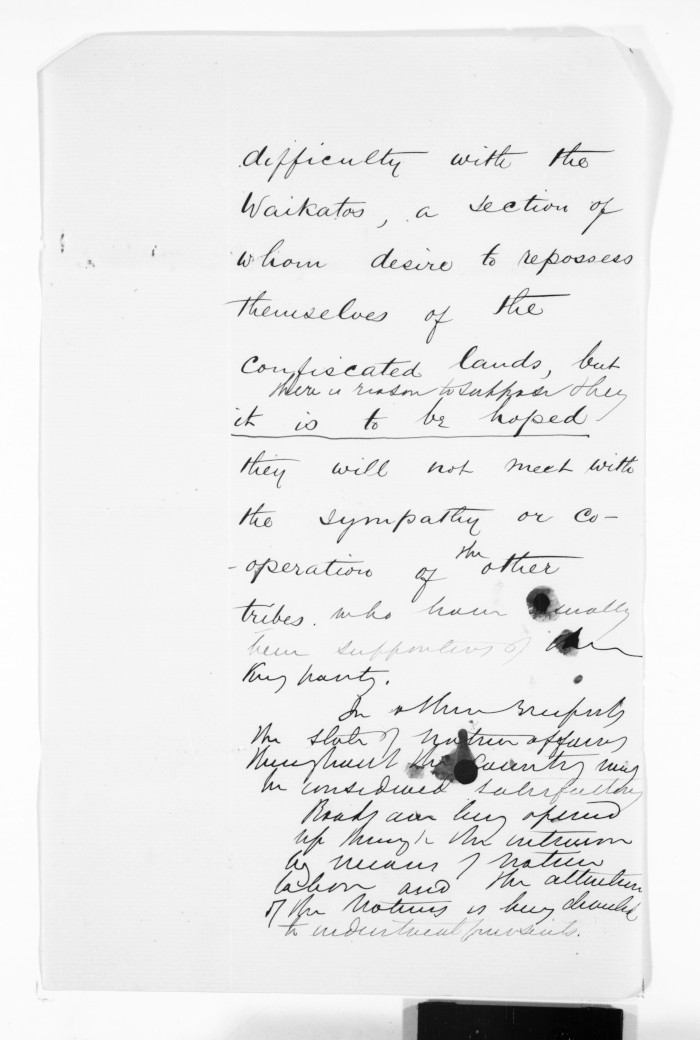 difficulty with the
Waikatos, a section of
whom desire to repossess
themselves of the
confiscated lands, but
there is reason to suppose they
it is to be hoped
they will not meet with
the sympathy or co-
-operation of the other
tribes. who have usually
been supporters of the
King party.
In other respects
the state of native affairs
throughout the country may
be considered satisfactory
Roads are being opened
up through the interior
by means of native
labour and the attention
of the Natives is being directed
to industrial pursuits.